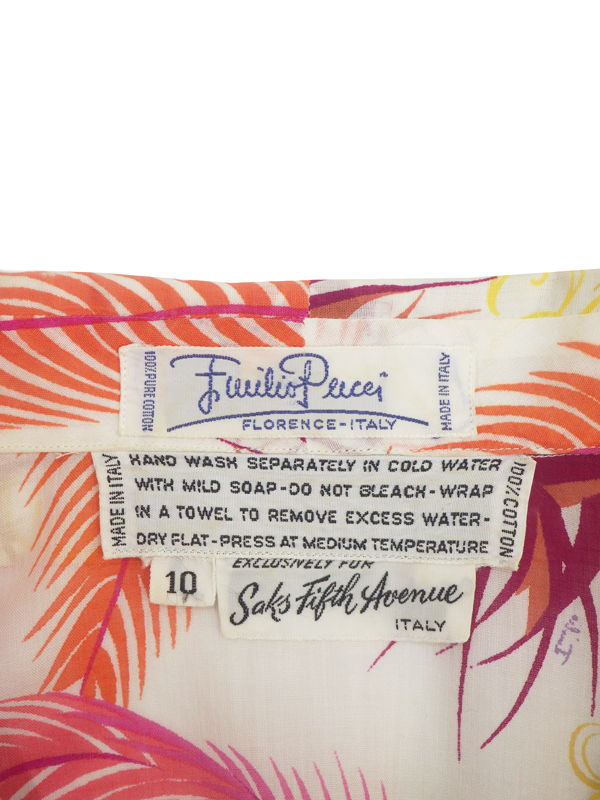 100% PURE COTTON
Emilio Pucci
FLORENCE-ITALY
MADE IN ITALY
MADE IN ITALY
HAND WASH SEPARATELY IN COLD WATER
WITH MILD SOAP-DO NOT BLEACH-WRAP
IN A TOWEL TO REMOVE EXCESS WATER-
DRY FLAT-PRESS AT MEDIUM TEMPERATURE
100% COTTON
10
EXCLUSIVELY FOR
Saks Fifth Avenue
ITALY